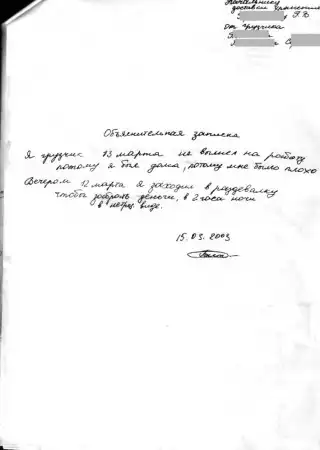 Начальнику
доставки
Р.В
от грузчика
Объяснительная записка
Я грузчик 13 марта не вышел на работу
потому я был дома, потому мне было плохо
Вечером 12 марта я заходил в раздевалку
чтобы забрать деньги, в 2 часа ночи
в нетрез. виде.
15.03.2003